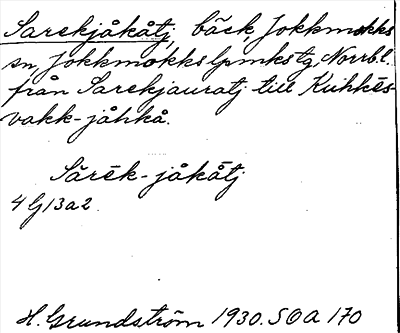 Sarekjåkåtj, bäck, Jokkmokks
sn, Jokkmokks lpmkstg, Norrb.l.
från Sarekjauratj till Kuhkēs-
vakk-jåhkå.
Sārēk-jåkåtj
4 G 13 a 2
H. Grundström 1930. SOA 170